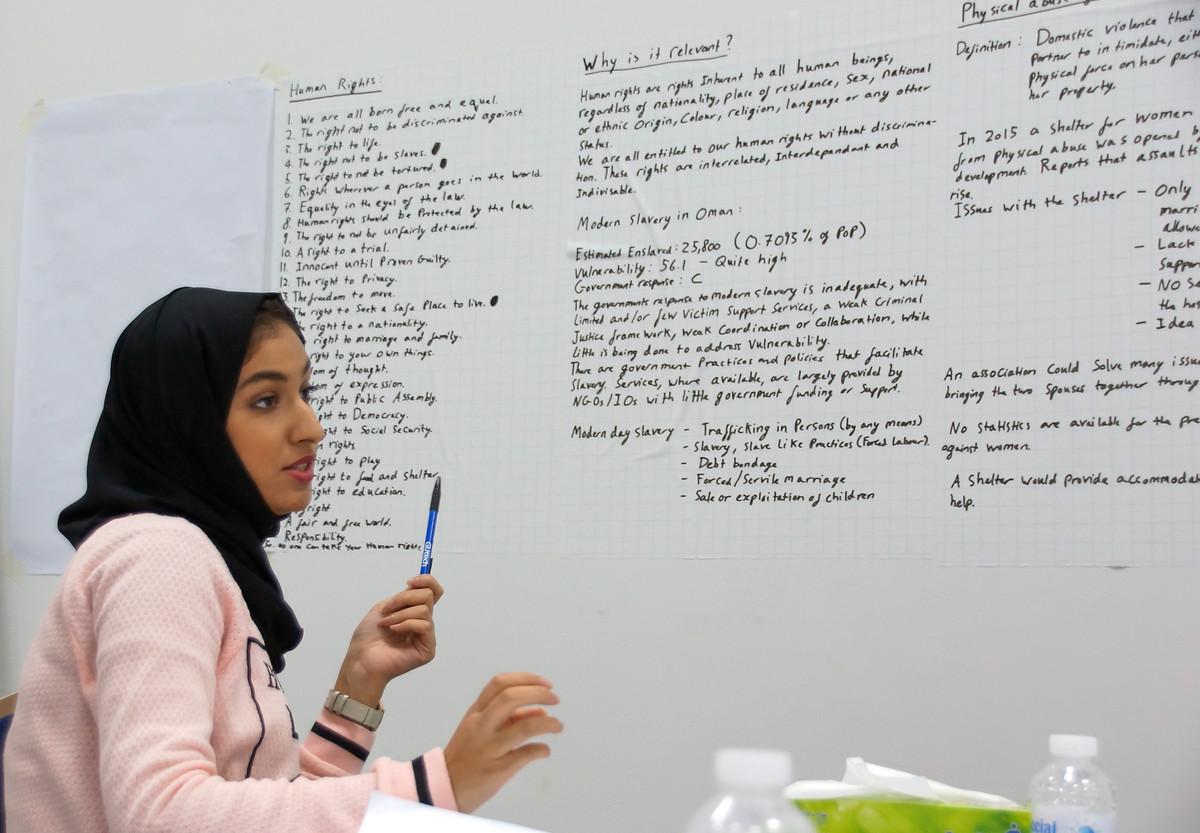 Human Rights:
1. We are all born free and equal.
2. The right not to be discriminated against.
3. The right to life.
4. The right not to be slaves.
5. The right to not be tortured.
6. Rights wherever a person goes in the world.
7. Equality in the eyes of the law.
8. Human rights should be Protected by the law.
9. The right to not be unfairly detained.
10. A right to a trial.
11. Innocent until Proven Guilty.
12. The right to Privacy.
3. The freedom to move.
The right to Seek a Safe Place to live.
right to a nationality.
right to marriage and family.
right to your own things.
of thought.
of expression.
right to Public Assembly.
to Democracy.
to Social Security.
rights
right to play
to food and shelter
to education.
right
A fair and free world.
Responsibility.
no one can take your Human rights
Why is it relevant?
Human rights are rights Inherent to all human beings,
regardless of nationality, place of residence, Sex, national
or ethnic Origin, Colour, religion, language or any other
Status.
We are all entitled to our human rights without discrimina-
tion. These rights are interrelated, Interdependant and
Indivisable.
Modern Slavery in Oman:
Estimated Enslaved: 25,800 (0.7093% of PoP)
Vulnerability: 56.1 - Quite high
Government response: C
The governments response to modern slavery is inadequate, with
Limited and/or few Victim Support Services, a Weak Criminal
Justice framework, Weak Coordination or Collaboration, while
Little is being done to address Vulnerability.
There are government Practices and Policies that facilitate
Slavery. Services, where available, are largely provided by
NGOs/IOs with little government funding or Support.
Modern day slavery - Trafficking in Persons (by any means)
- Slavery, slave Like Practices (Forced Labour).
- Debt bondage
- Forced/Servile marriage
- Sale or exploitation of children
Physical abuse
Definition: Domestic violence that
Partner to intimidate,
Physical force on her
her property.
In 2015 a shelter for women
from physical abuse was opened
development. Reports that assaults
rise.
Issues with the shelter - Only
- Lack
- No
the
- Idea
An association Could Solve many
bringing the two Spouses together
No statistics are available for the
against women.
A Shelter would provide
help.